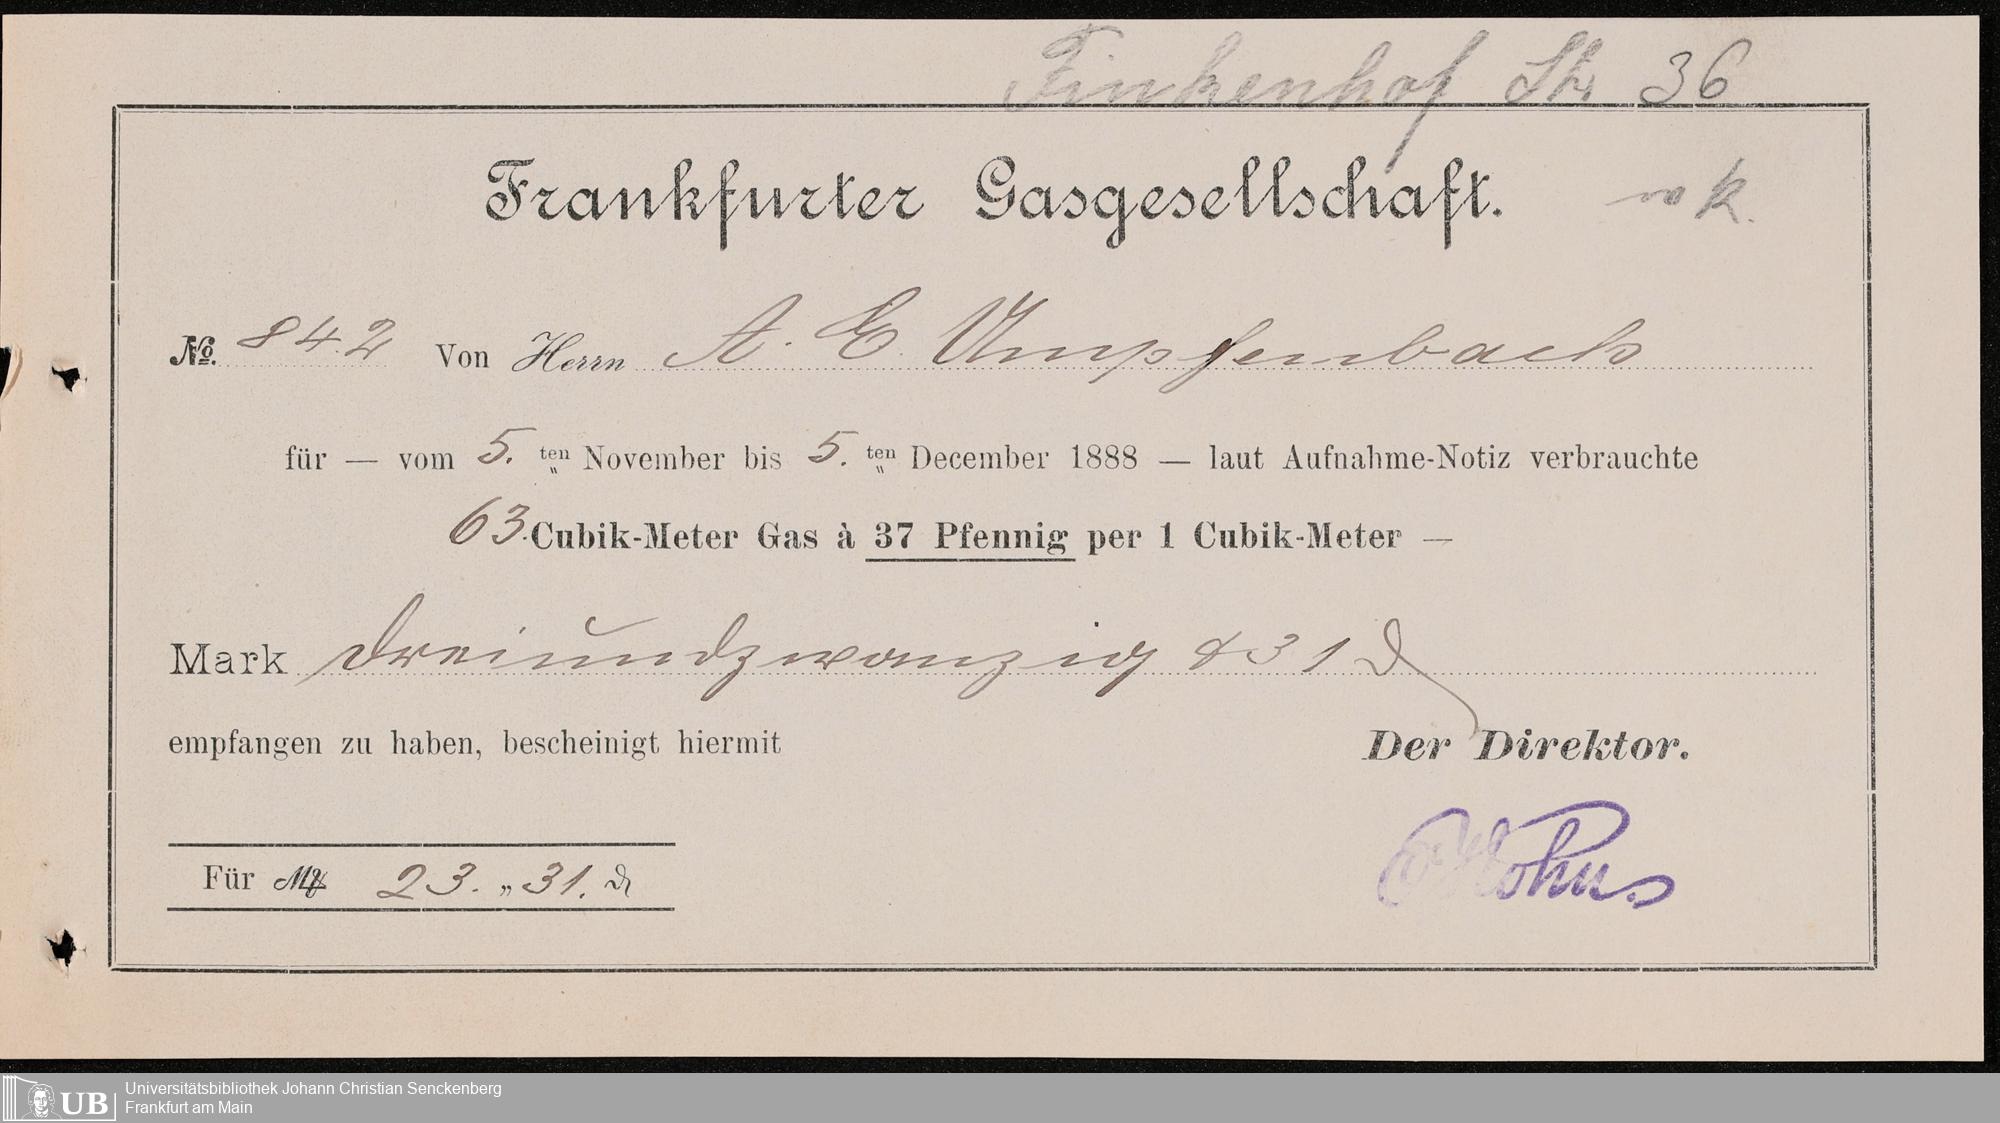 Finkenhof Str 36
Frankfurter Gasgesellschaft.
No. 842 Von Herrn A. E. Umpfenbach
für — vom 5. ten November bis 5. ten December 1888 — laut Aufnahme-Notiz verbrauchte
63. Cubik-Meter Gas à 37 Pfennig per 1 Cubik-Meter —
Mark dreiundzwanzig & 31 ₰
empfangen zu haben, bescheinigt hiermit
Der Direktor.
Für ℳ 23. „ 31. ₰
UB
Universitätsbibliothek Johann Christian Senckenberg
Frankfurt am Main